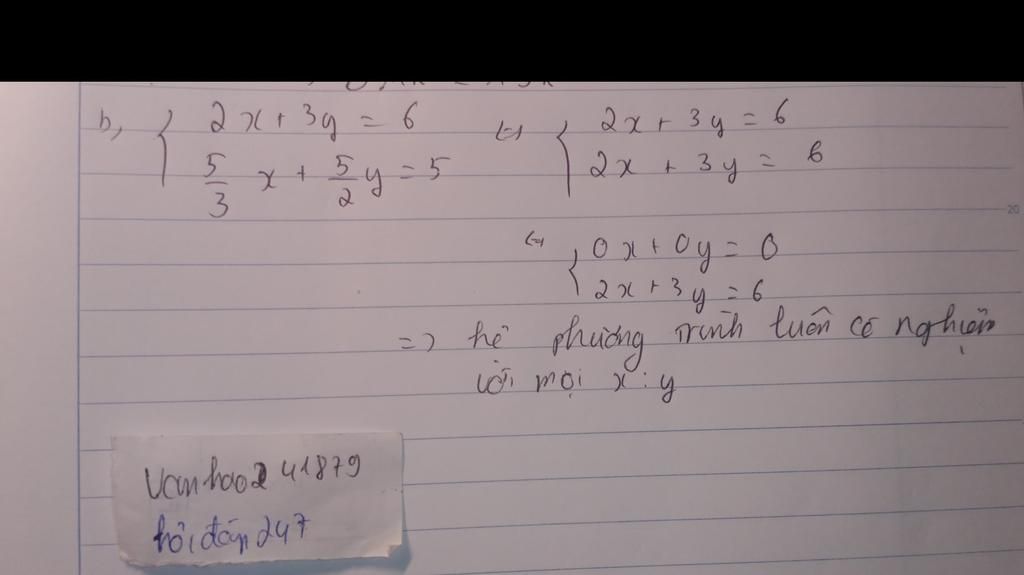 b, { 2x + 3y = 6 (=) { 2x + 3y = 6
5/3 x + 5/2 y = 5 2x + 3y = 6
(=) { 0x + 0y = 0
2x + 3y = 6
=> hệ phương trình luôn có nghiệm
với mọi x ; y
Vanhao241879
hỏi đáp 247
20